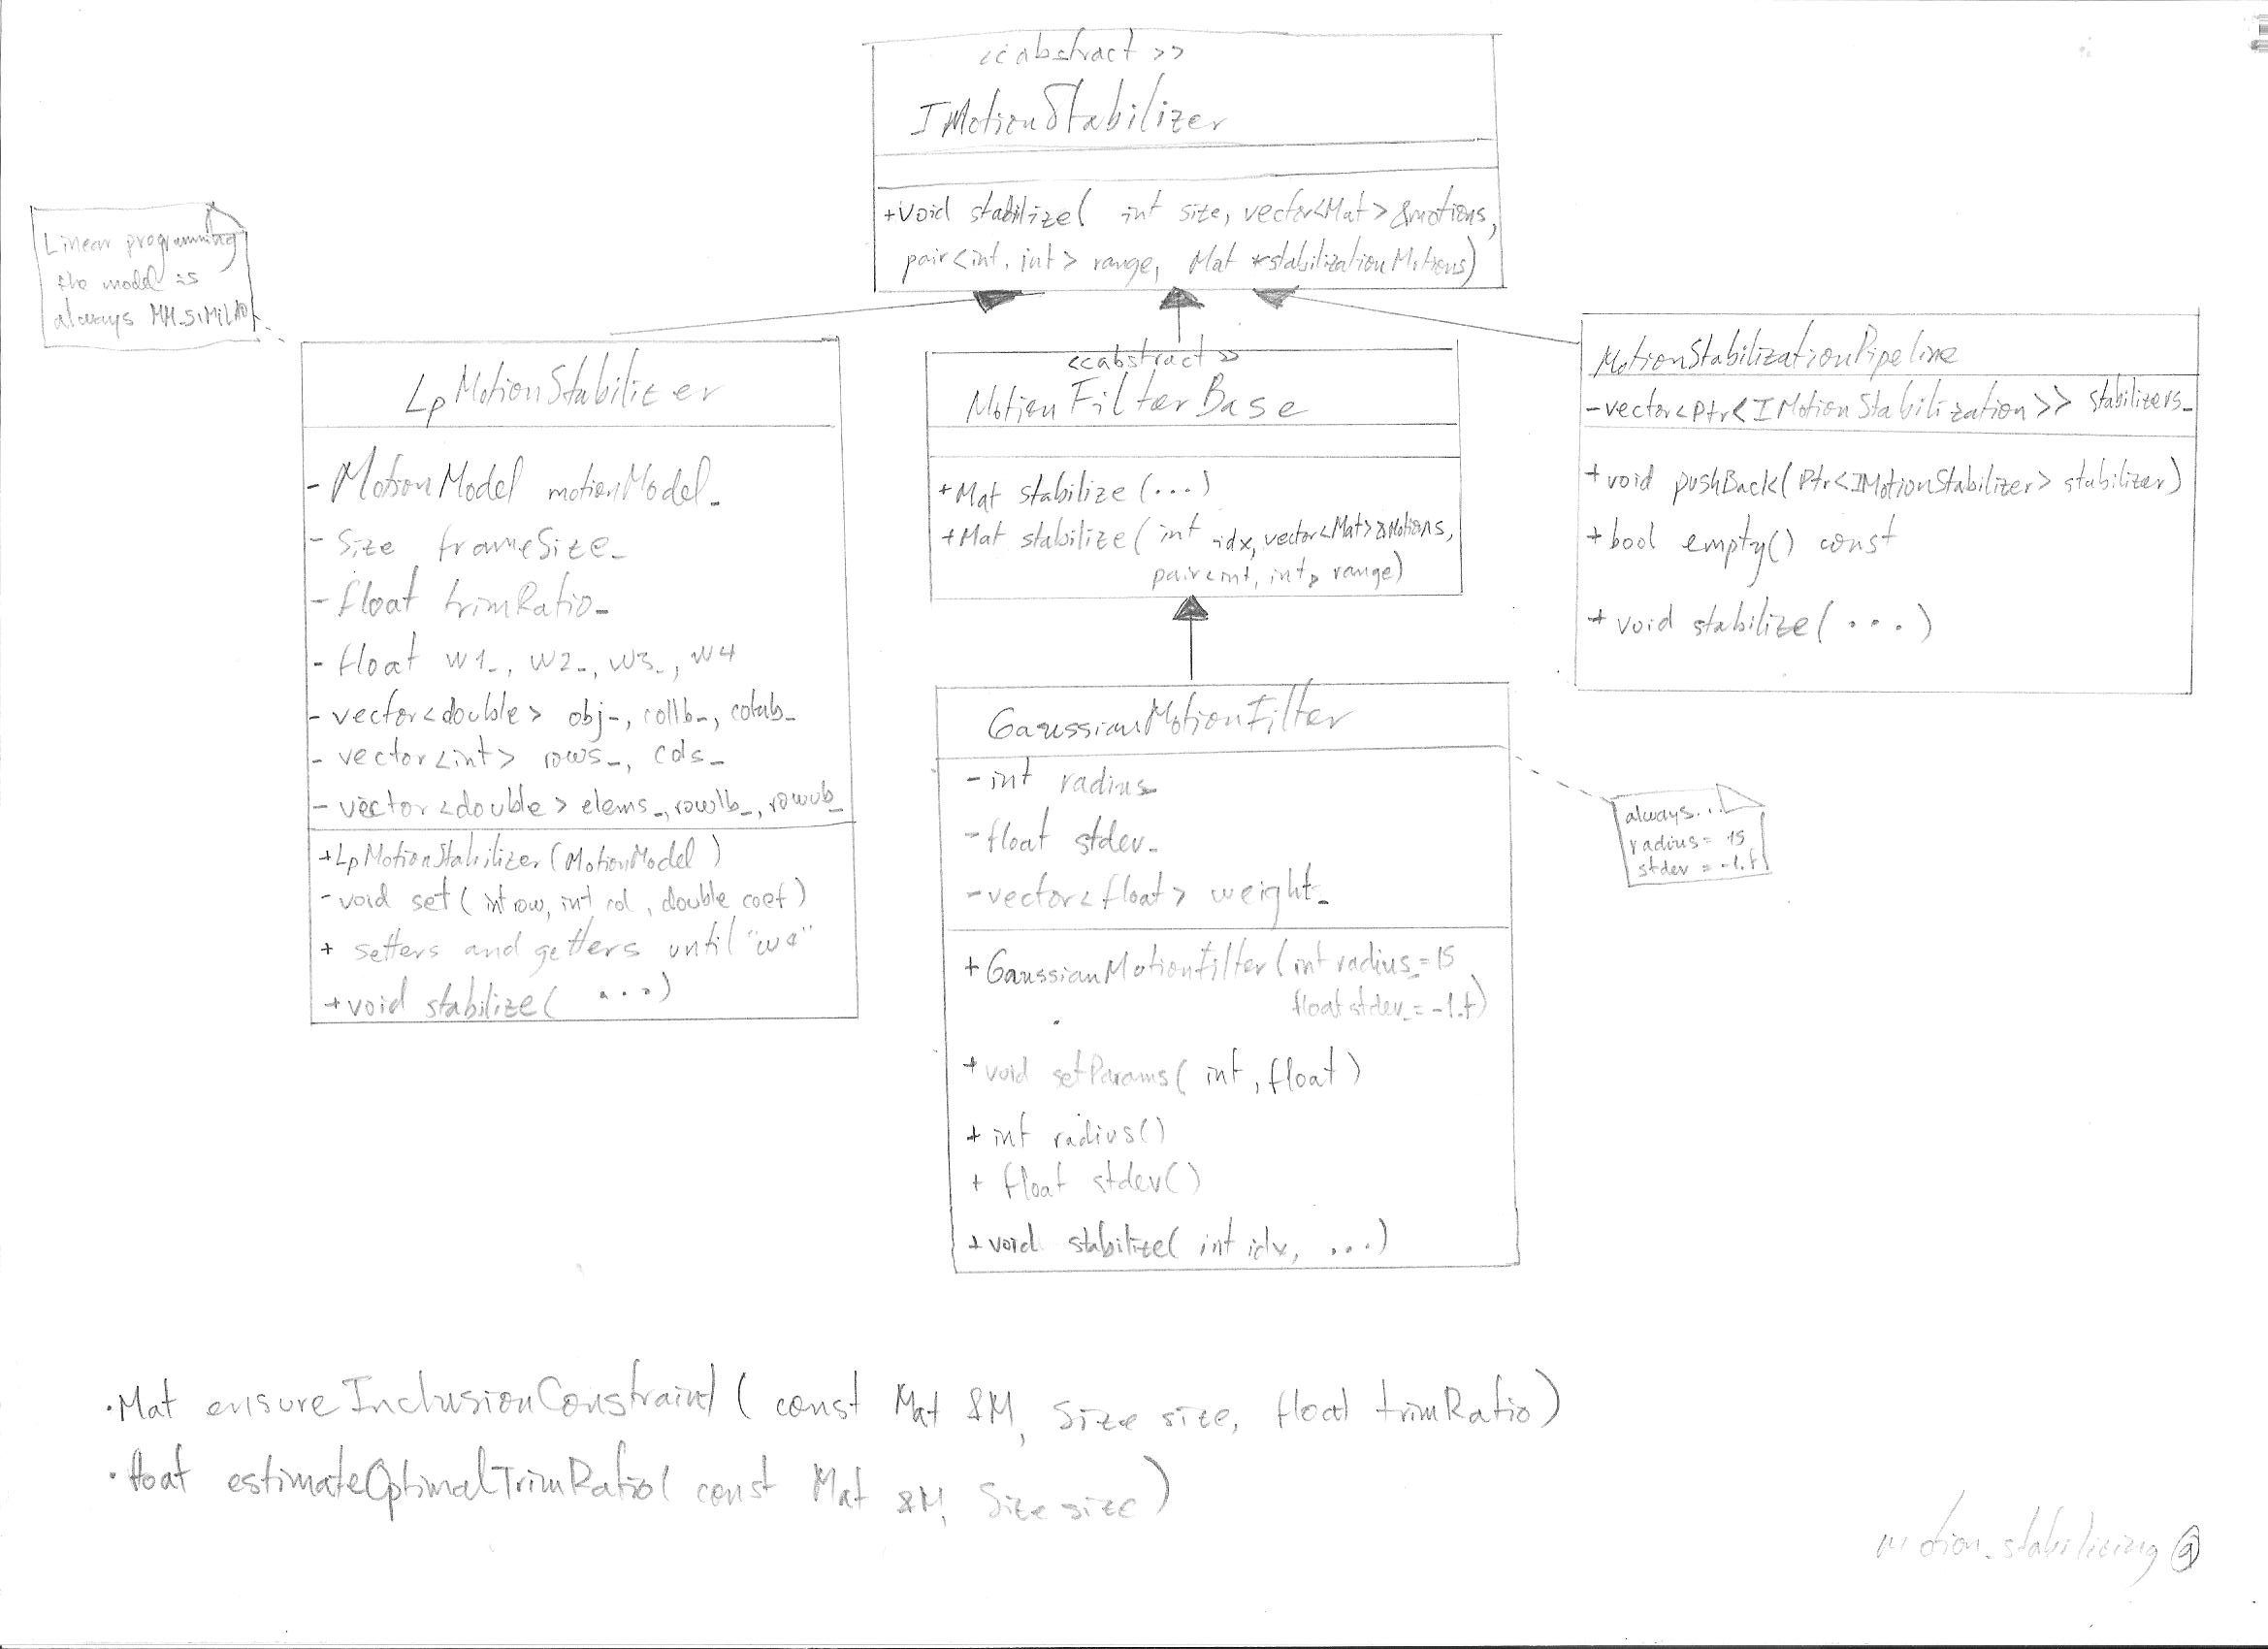 <<abstract>>
IMotionStabilizer
+void stabilize( int size, vector<Mat> &motions,
pair<int, int> range, Mat *stabilizationMotions)
Linear programming
the model is
always MM_SIMILAR
LpMotionStabilizer
- MotionModel motionModel_
- Size frameSize_
- float trimRatio_
- float w1_, w2_, w3_, w4
- vector<double> obj_, collb_, colub_
- vector<int> rows_, cols_
- vector<double> elems_, rowlb_, rowub_
+LpMotionStabilizer(MotionModel)
-void set( int row, int col, double coef)
+ setters and getters until "w4"
+void stabilize( ...)
<<abstract>>
MotionFilterBase
+Mat stabilize (...)
+Mat stabilize( int idx, vector<Mat>&Motions,
pair<int, int> range)
MotionStabilizationPipeline
-vector<Ptr<IMotionStabilization>> stabilizers_
+void pushBack( Ptr<IMotionStabilizer> stabilizer)
+bool empty() const
+ void stabilize( ...)
GaussianMotionFilter
-int radius_
-float stdev_
-vector<float> weight_
+GaussianMotionFilter(int radius_=15
float stdev_=-1.f)
+void setParams( int, float)
+ int radius()
+ float stdev()
+void stabilize( int idx, ...)
always...
radius= 15
stdev = -1.f
·Mat ensureInclusionConstraint( const Mat &M, Size size, float trimRatio)
·float estimateOptimalTrimRatio( const Mat &M, Size size)
motion_stabilizing @